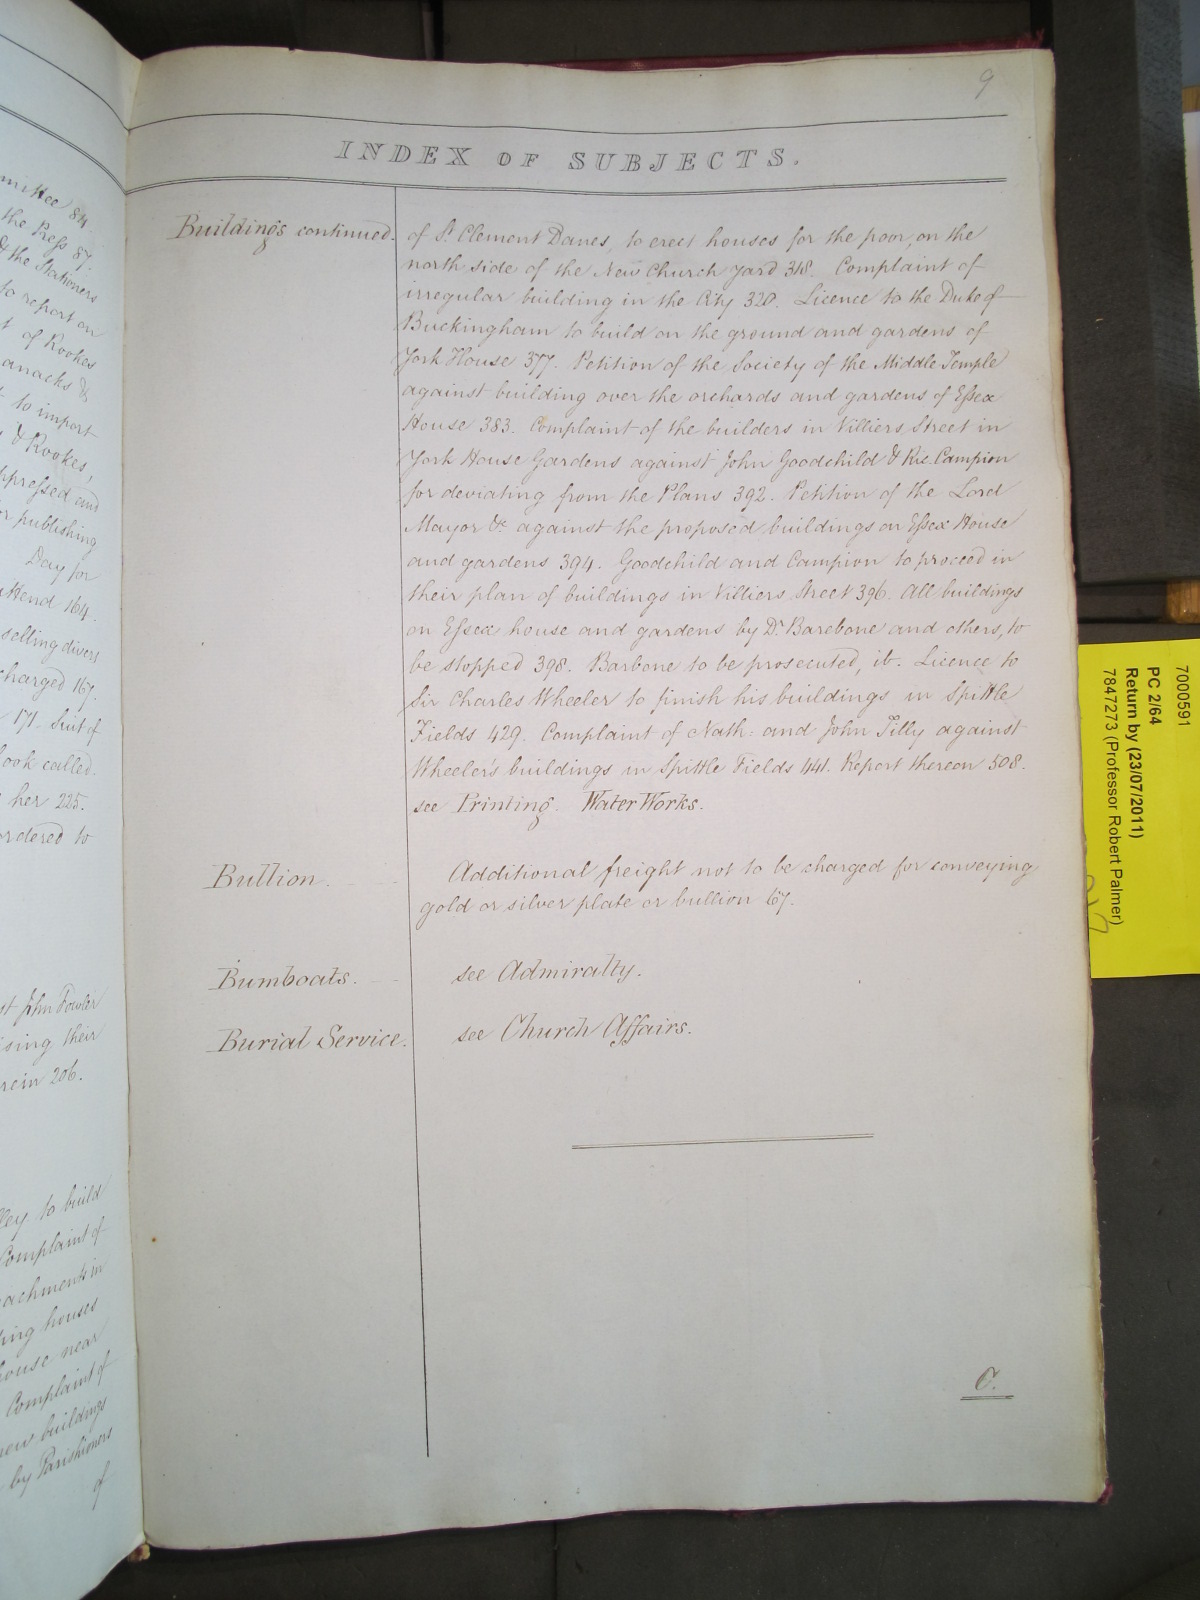 mmittee 84.
the Press 87.
& the Stationers
to report on
t of Rookes
anacks &
to import
& Rookes,
ppressed and
or publishing
Day for
attend 164.
selling divers
charged 167.
171. Suit of
ook called.
her 225.
ordered to
st John Fowler
sing their
rein 206.
ley to build
Complaint of
achments in
ding houses
house near
Complaint of
new buildings
by Parishioners
of
9
INDEX OF SUBJECTS.
Buildings continued. of St. Clement Danes, to erect houses for the poor, on the
north side of the New Church yard 318. Complaint of
irregular building in the City 320. Licence to the Duke of
Buckingham to build on the ground and gardens of
York House 377. Petition of the Society of the Middle Temple
against building over the orchards and gardens of Essex
House 383. Complaint of the builders in Villiers Street in
York House Gardens against John Goodchild & Ric. Campion
for deviating from the Plans 392. Petition of the Lord
Mayor &c against the proposed buildings on Essex House
and gardens 394. Goodchild and Campion to proceed in
their plan of buildings in Villiers Street 396. All buildings
on Essex house and gardens by Dr. Barebone and others, to
be stopped 398. Barbone to be prosecuted, ib. Licence to
Sir Charles Wheeler to finish his buildings in Spittle
Fields 429. Complaint of Nath: and John Tilly against
Wheeler's buildings in Spittle Fields 441. Report thereon 508.
see Printing. Water Works.
Bullion. Additional freight not to be charged for conveying
gold or silver plate or bullion 67.
Bumboats. see Admiralty.
Burial Service. see Church Affairs.
C.
7000591
PC 2/64
Return by (23/07/2011)
7847273 (Professor Robert Palmer)